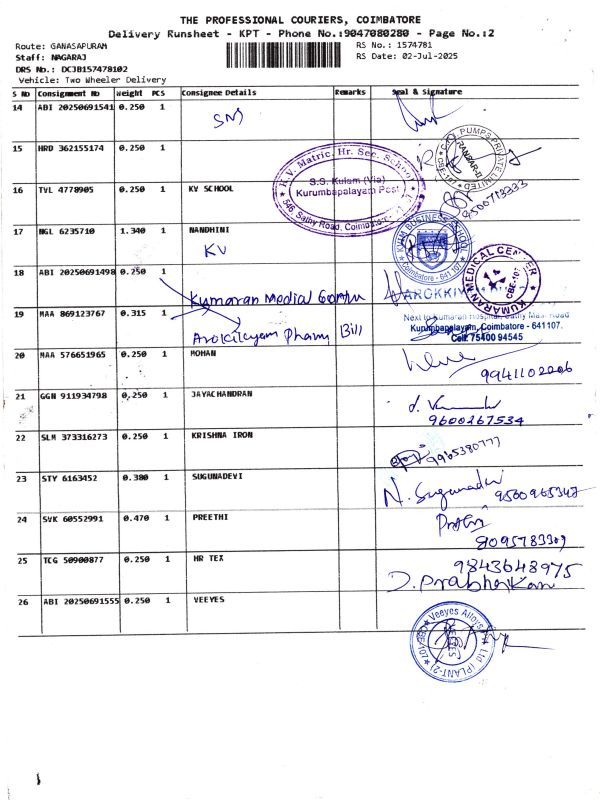 THE PROFESSIONAL COURIERS, COIMBATORE
Delivery Runsheet - KPT - Phone No.:9047080280 - Page No.:2
Route: GANASAPURAM
RS No.: 1574781
Staff: NAGARAJ
RS Date: 02-Jul-2025
DRS No.: DCJB157478102
Vehicle: Two Wheeler Delivery
S No Consignment No Weight PCS Consignee Details Remarks Seal & Signature
14 ABI 20250691541 0.250 1
SNS
15 HRD 362155174 0.250 1
PUMPS PRIVATE LIMITED
K.V. Matric. Hr. Sec. School
S.S. Kulam (Via)
Kurumbapalayam Post
546 Sathy Road, Coimbatore
16 TYL 4778905 0.250 1 KV SCHOOL
9500713333
17 NGL 6235710 1.340 1 NANDHINI
KV
BUSINESS SCHOOL
Coimbatore - 641 107
18 ABI 20250691498 0.250 1
Kumaran Medical
KUMARAN MEDICAL CENTER
CBE-107
19 MAA 869123767 0.315 1
Bill
Next to Kumaran Hospital, Sathy Main Road
Kurumbapalayam, Coimbatore - 641107.
Cell: 75400 94545
20 MAA 576651965 0.250 1 MOHAN
9941102006
21 GGN 911934798 0.250 1 JAYACHANDRAN
9600267534
22 SLM 373316273 0.250 1 KRISHNA IRON
9965380777
23 STY 6163452 0.380 1 SUGUNADEVI
N. Sugunadevi
24 SVK 60552991 0.470 1 PREETHI
8095783309
25 TCG 50900877 0.250 1 HR TEX
9843648975
D. Prabhakaran
26 ABI 20250691555 0.250 1 VEEYES
Veeyes Alloys Pvt Ltd (PLANT-2)
VEEYES
CBE-107